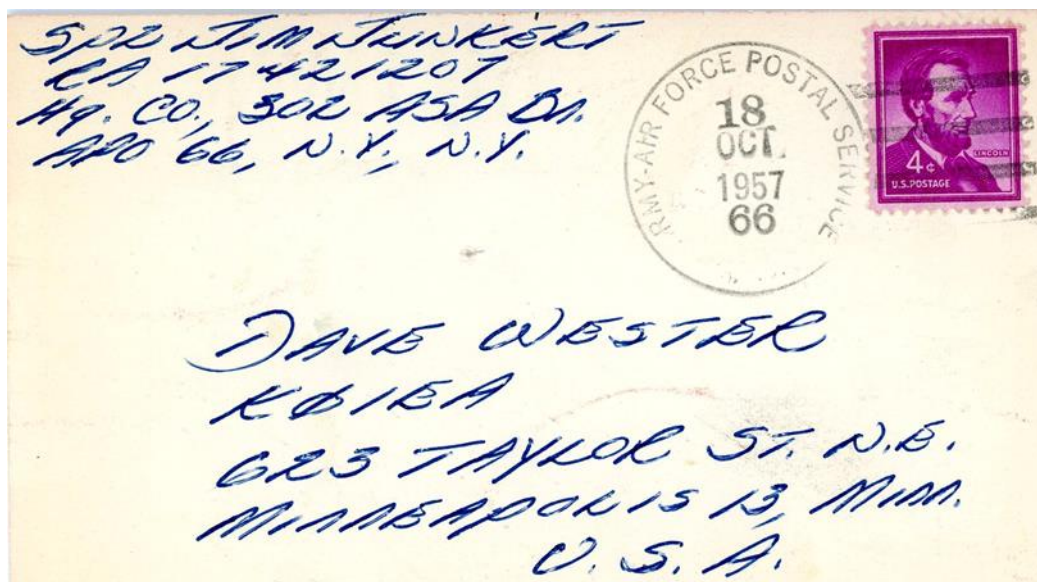 SP2 JIM JUNKERT
RA 17421207
Hq. CO., 302 ASA BN.
APO 66, N.Y., N.Y.
RMY-AIR FORCE POSTAL SERVICE
18
OCT
1957
66
LINCOLN
4¢
U.S.POSTAGE
DAVE WESTER
KØIEA
623 TAYLOR ST. N.E.
MINNEAPOLIS 13, MINN.
U.S.A.